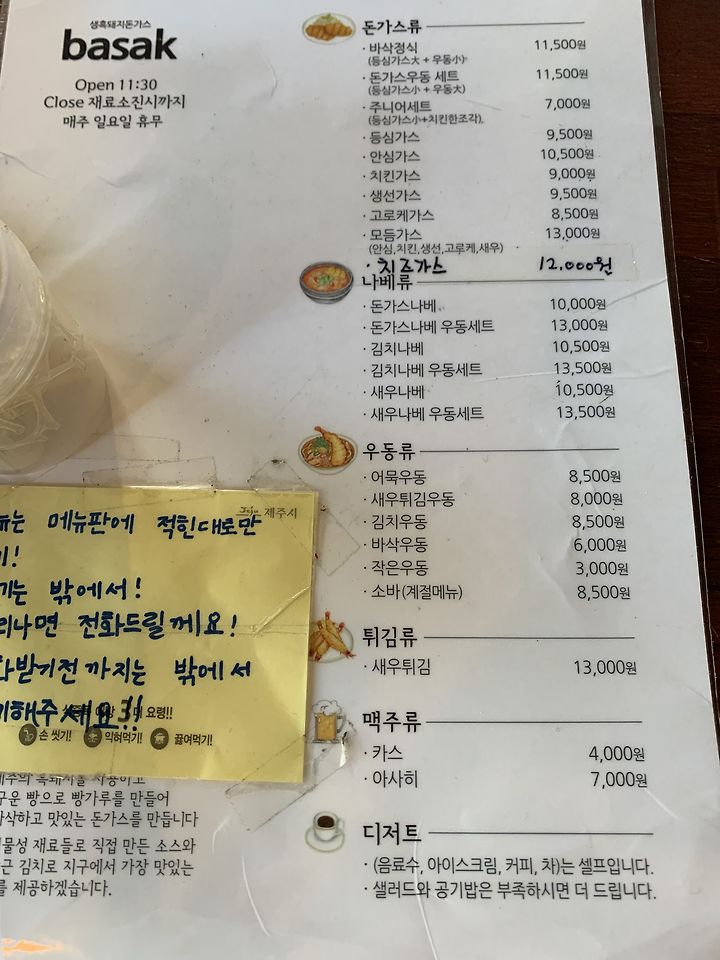 생흑돼지돈가스
basak
Open 11:30
Close 재료소진시까지
매주 일요일 휴무
돈가스류
· 바삭정식 11,500원
(등심가스大 + 우동小)
· 돈가스우동 세트 11,500원
(등심가스小 + 우동大)
· 주니어세트 7,000원
(등심가스小+치킨한조각)
· 등심가스 9,500원
· 안심가스 10,500원
· 치킨가스 9,000원
· 생선가스 9,500원
· 고로케가스 8,500원
· 모듬가스 13,000원
(안심,치킨,생선,고로케,새우)
· 치즈가스 12,000원
나베류
· 돈가스나베 10,000원
· 돈가스나베 우동세트 13,000원
· 김치나베 10,500원
· 김치나베 우동세트 13,500원
· 새우나베 10,500원
· 새우나베 우동세트 13,500원
우동류
· 어묵우동 8,500원
· 새우튀김우동 8,000원
· 김치우동 8,500원
· 바삭우동 6,000원
· 작은우동 3,000원
· 소바(계절메뉴) 8,500원
튀김류
· 새우튀김 13,000원
맥주류
· 카스 4,000원
· 아사히 7,000원
디저트
· (음료수, 아이스크림, 커피, 차)는 셀프입니다.
· 샐러드와 공기밥은 부족하시면 더 드립니다.
Jeju 제주시
뉴는 메뉴판에 적힌대로만
기!
기는 밖에서!
리나면 전화드릴께요!
화받기전 까지는 밖에서
기해주세요!!
요령!!
손 씻기! 익혀먹기! 끓여먹기!
제주의 흑돼지를 사용하고
구운 빵으로 빵가루를 만들어
바삭하고 맛있는 돈가스를 만듭니다
물성 재료들로 직접 만든 소스와
근 김치로 지구에서 가장 맛있는
를 제공하겠습니다.